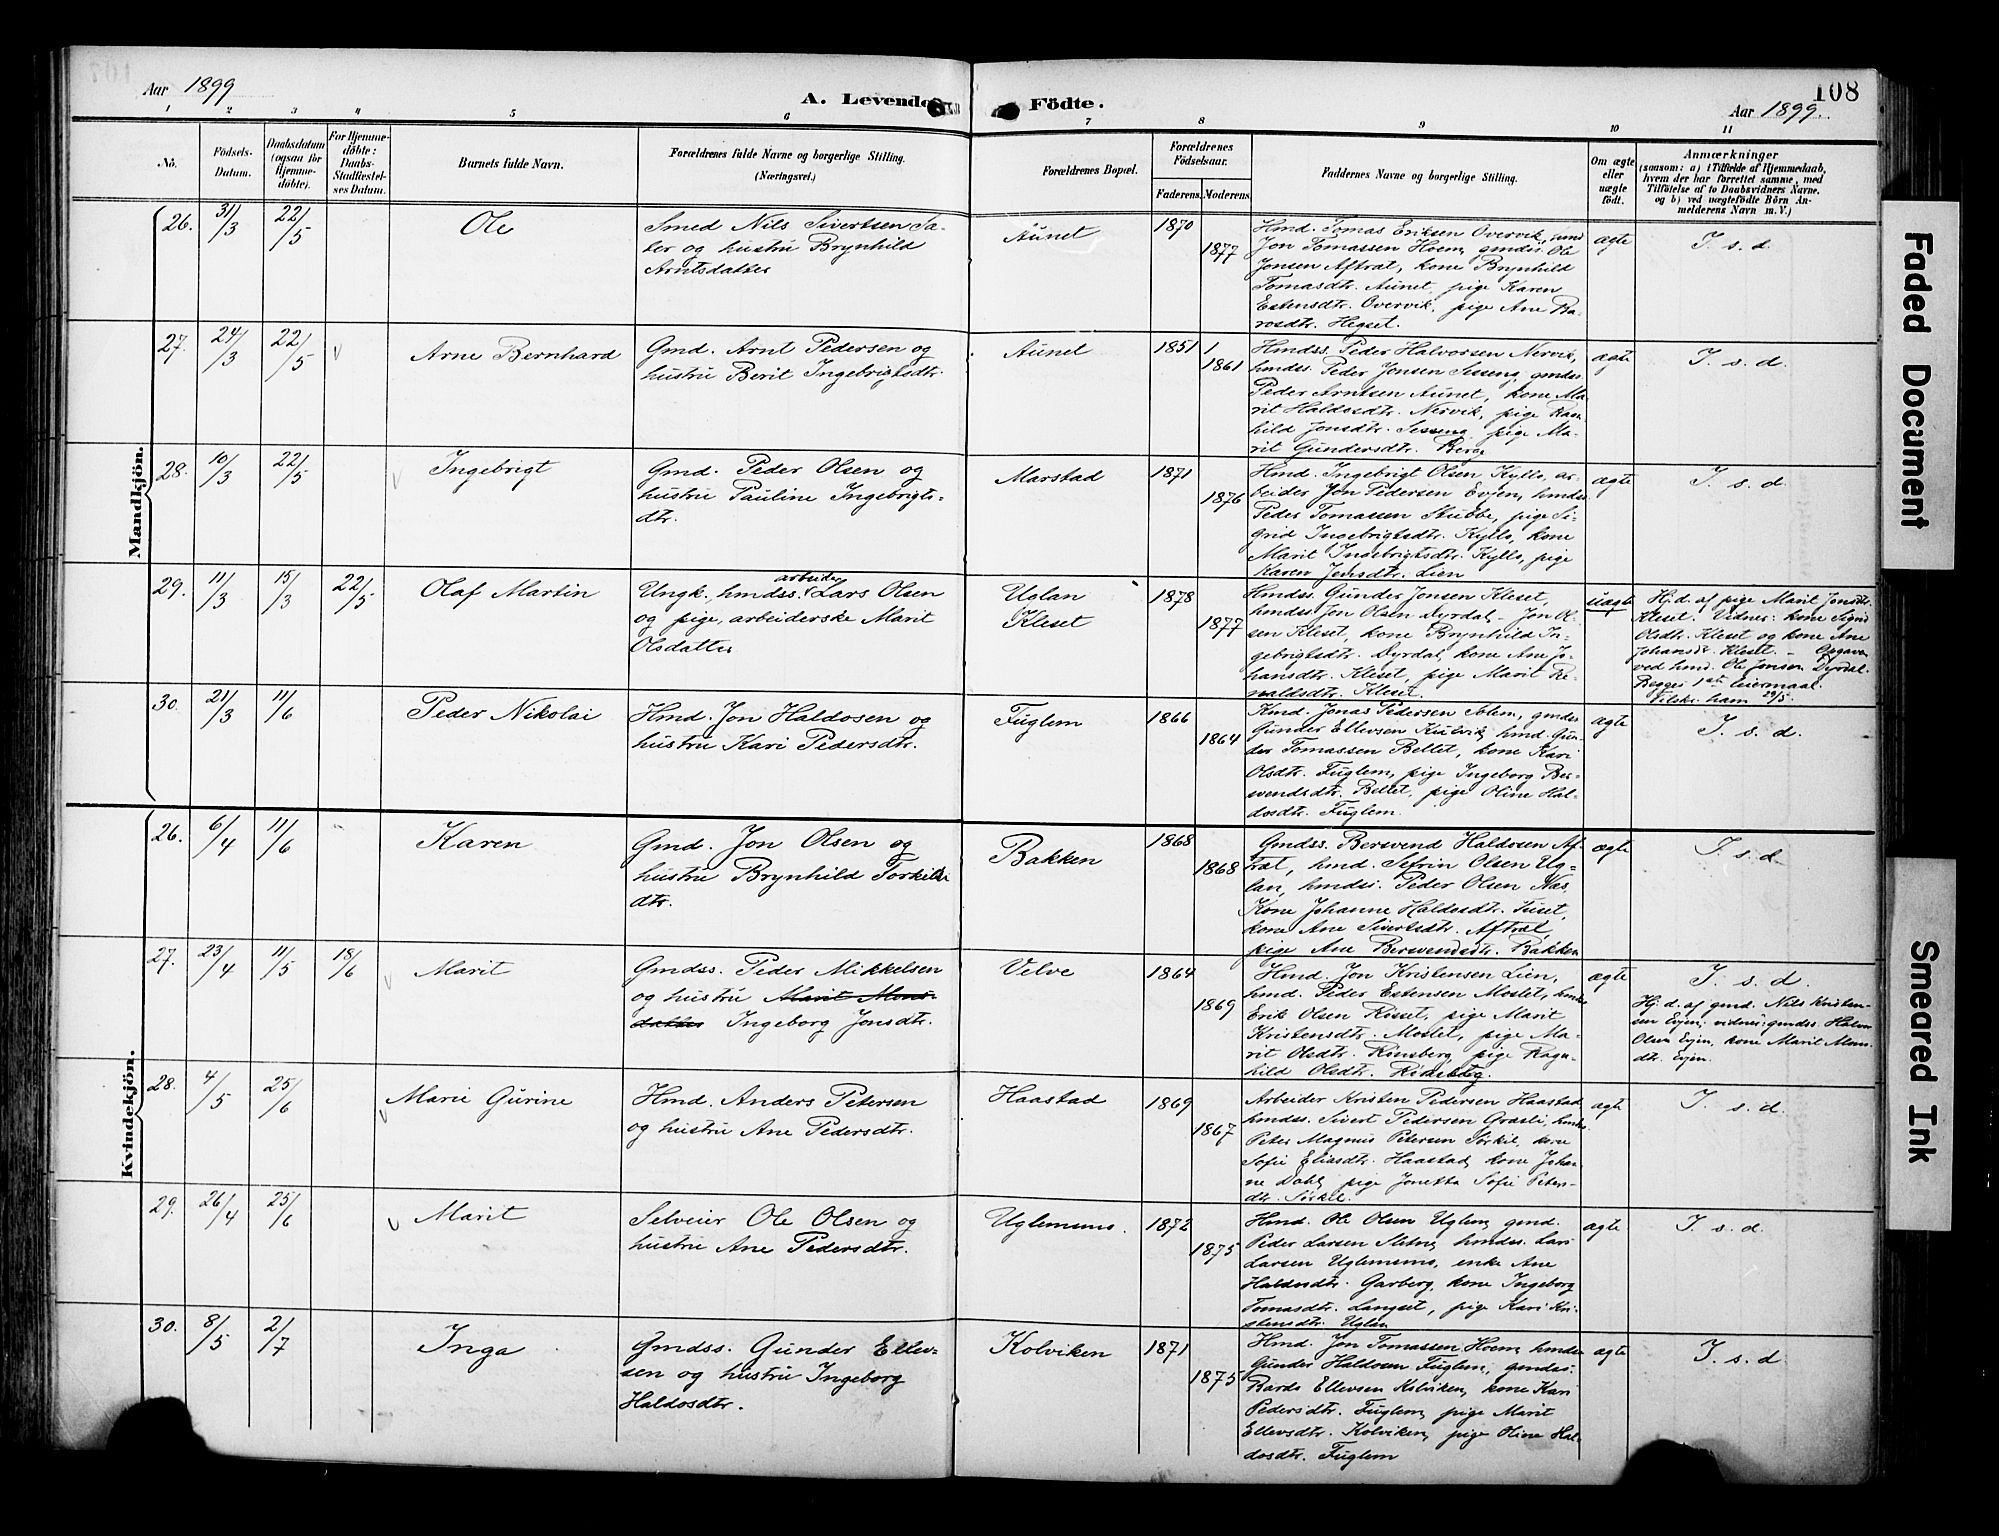 108
Aar 1899
A. Levende Födte.
Aar 1899.
1 2 3 4 5 6 7 8 9 10 11
No.
Födsels-
Datum.
Daabsdatum
(ogsaa for
Hjemme-
döbte).
For Hjemme-
döbte:
Daabs-
Stadfæstel-
ses Datum.
Barnets fulde Navn.
Forældrenes fulde Navne og borgerlige Stilling.
(Næringsvei.)
Forældrenes Bopæl.
Forældrenes
Födselsaar.
Faderens. Moderens.
Faddernes Navne og borgerlige Stilling.
Om ægte
eller
uægte
födt.
Anmærkninger
(saasom: a) i Tilfælde af Hjemmedaab,
hvem der har forrettet samme, med
Tilföielse af to Daabsvidners Navne,
og b) ved uægtefödte Börn An-
melderens Navn m. V.)
Mandkjön.
26. 31/3 22/5
Ole
Smed Nils Sivertsen Sa-
ter og hustru Brynhild
Arntsdatter
Aunet
1870
1877
Hmd. Tomas Eriksen Overvik, hmd
Jon Tomassen Hoem, gmds. Ole
Jonsen Aftrat, kone Brynhild
Tomasdtr. Aunet, pige Karen
Estensdtr. Overvik, pige Ane Ba-
rosdtr. Hegset.
ægte
I. s. d.
27. 24/3 22/5
Arne Bernhard
Gmd. Arnt Pedersen og
hustru Berit Ingebrigtsdtr.
Aunet
1851
1861
Hmdss. Peder Halvorsen Nervik,
hmdss. Peder Jonsen Sesseng, gmdss.
Peder Arntsen Aunet, kone Ma-
rit Haldosdtr. Nervik, pige Ragn-
hild Jonsdtr. Sesseng, pige Ma-
rit Gundersdtr. Berg
ægte
I. s. d.
28. 10/3 22/5
Ingebrigt
Gmd. Peder Olsen og
hustru Pauline Ingebrigts-
dtr.
Marstad
1871
1876
Hmd. Ingebrigt Olsen Kyllo, ar-
beider Jon Pedersen Evjen, hmdss.
Peder Tomassen Stubbe, pige Si-
grid Ingebrigtsdtr. Kyllo, kone
Marit Ingebrigtsdtr. Kyllo, pige
Karen Jensdtr. Lien
ægte
I. s. d.
29. 11/3 15/3 22/5
Olaf Martin
Ungk. hmdss. arbeider Lars Olsen
og pige, arbeiderske Marit
Olsdatter
Uglan
Kleset
1878
1877
Hmdss. Gunder Jonsen Kleset,
hmdss Jon Olsen Dyrdal, Jon Ol-
sen Kleset, kone Brynhild In-
gebrigtsdtr. Dyrdal, kone Ane Jo-
hansdtr. Kleset, pige Marit Re-
naldsdtr. Kleset.
uægte
Hj.d. af pige Marit Jonsdtr.
Kleset. Vidner: kone Sigrid
Olsdtr. Kleset og kone Ane
Johansdtr. Kleset. – Opgaven
ved hmd. Ole Jonsen Dyrdal.
Begges 1ste leiermaal.
29/5.
30. 21/3 11/6
Peder Nikolai
Hmd. Jon Haldosen og
hustru Kari Pedersdtr.
Fuglem
1866
1864
Hmd. Jonas Pedersen Solem, gmdss
Gunder Ellevsen Kulvik, hmd. Gun-
der Tomassen Bellet, kone Kari
Olsdtr. Fuglem, pige Ingeborg Ber-
svendsdtr. Bellet, pige Oline Hal-
dosdtr. Fuglem.
ægte
I. s. d.
Kvindekjön.
26. 6/4 11/6
Karen
Gmd. Jon Olsen og
hustru Brynhild Torkils
dtr.
Bakken
1868
1868
Gmdss. Bersvend Haldosen Af-
trat, hmd. Sefrin Olsen Ug-
lan, hmdss. Peder Olsen Næs,
Kone Johanne Haldosdtr. Tuset,
kone Ane Sivertsdtr. Aftrat,
pige Ane Bersvendsdtr. Bakken
ægte
I. s. d.
27. 23/4 11/5 18/6
Marit
Gmdss. Peder Mikkelsen
og hustru Marit Mons-
datter Ingeborg Jonsdtr.
Velve
1864
1869
Hmd. Jon Kristensen Lien,
hmd. Peder Estensen Mostet, hmdss
Erik Olsen Rosset, pige Marit
Kristensdtr. Mostet, pige Ma-
rit Olsdtr. Rinsberg, pige Ragn-
hild Olsdtr. Rinsberg.
ægte
I. s. d.
Hj.d. af gmd. Nils Kristen-
sen Evjen; vidner: gmdss. Halvor
Olsen Evjen, kone Marit Mons-
dtr. Evjen.
28. 4/5 25/6
Marie Gurine
Hmd. Anders Petersen
og hustru Ane Pedersdtr.
Haastad
1869
1867
Arbeider Kristen Pedersen Haastad
hmdss. Sivert Pedersen Grasli, hmdss
Peter Magnus Petersen Sørkil, kone
Sofie Eliasdtr. Haastad, kone Johan-
ne Dahl, pige Jonetta Sofie Peters-
dtr. Sørkil.
ægte
I. s. d.
29. 26/4 25/6
Marit
Selveier Ole Olsen og
hustru Ane Pedersdtr.
Uglemsmo.
1872
1875
Hmd. Ole Olsen Uglem, gmd.
Peder Larsen Sletne, hmdss. Lars
Larsen Uglemsmo, enke Ane
Haldosdtr. Garberg, kone Ingeborg
Tomasdtr. Langset, pige Kari Kri-
stensdtr. Uglan
ægte
I. s. d.
30. 8/5 2/7
Inga
Gmdss. Gunder Ellev-
sen og hustru Ingeborg
Haldosdtr.
Kolviken
1871
1875
Hmd. Jon Tomassen Hoem, hmdss
Gunder Haldosen Fuglem, gmdss.
Bardo Ellevsen Kolviken, kone Kari
Pedersdtr. Fuglem, pige Marit
Ellevsdtr. Kolviken, pige Oline Hal-
dosdtr. Fuglem
ægte
I. s. d.
Faded Document
Smeared Ink